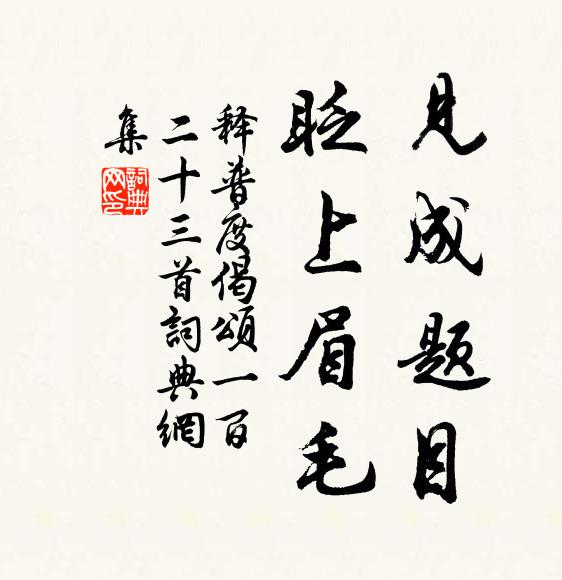 見成题目
眨上眉毛
释普度偈頌一百
二十三首詞典網
集
詞典
网印